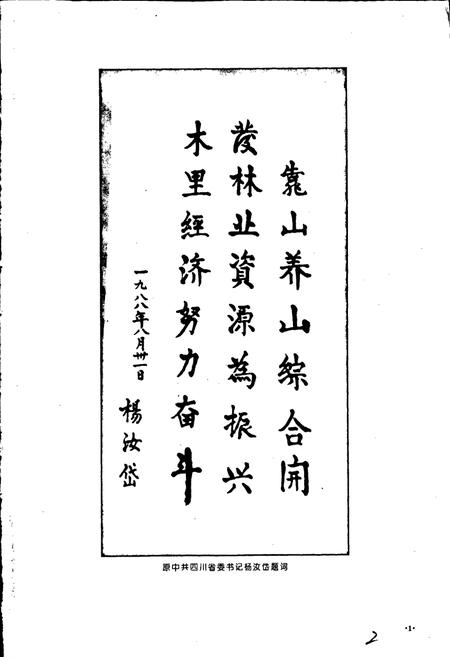 靠山养山綜合開
發林业資源為振兴
木里經济努力奋斗
一九八八年八月卅一日
楊汝岱
原中共四川省委书记杨汝岱题词
·1·
2